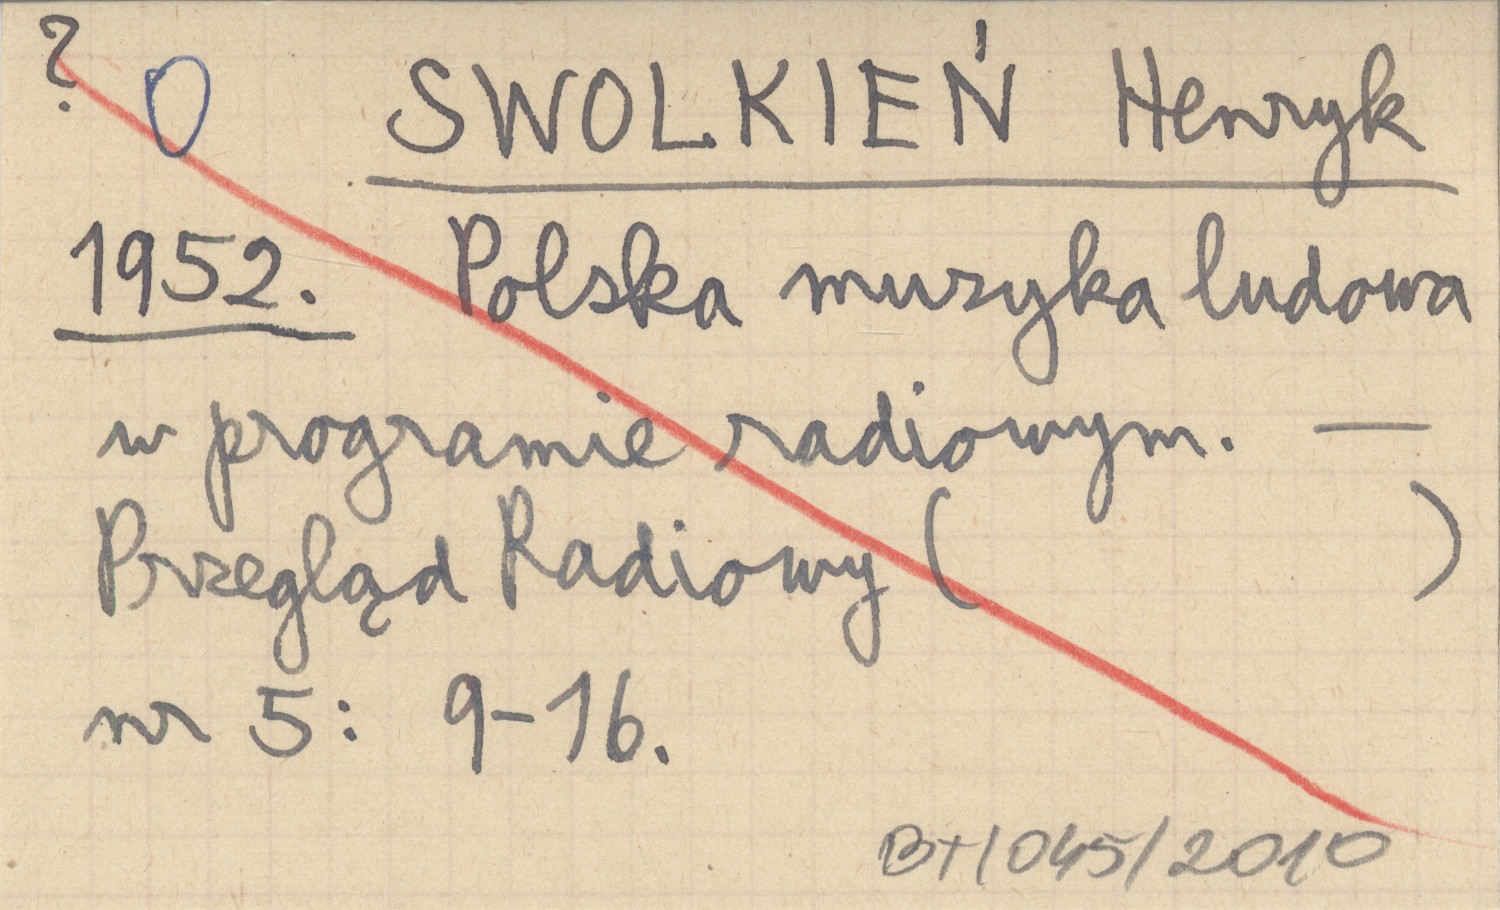 ? O SWOLKIEŃ Henryk
1952. Polska muzyka ludowa
w programie radiowym. —
Przegląd Radiowy ( )
nr 5: 9-16.
BT/045/2010